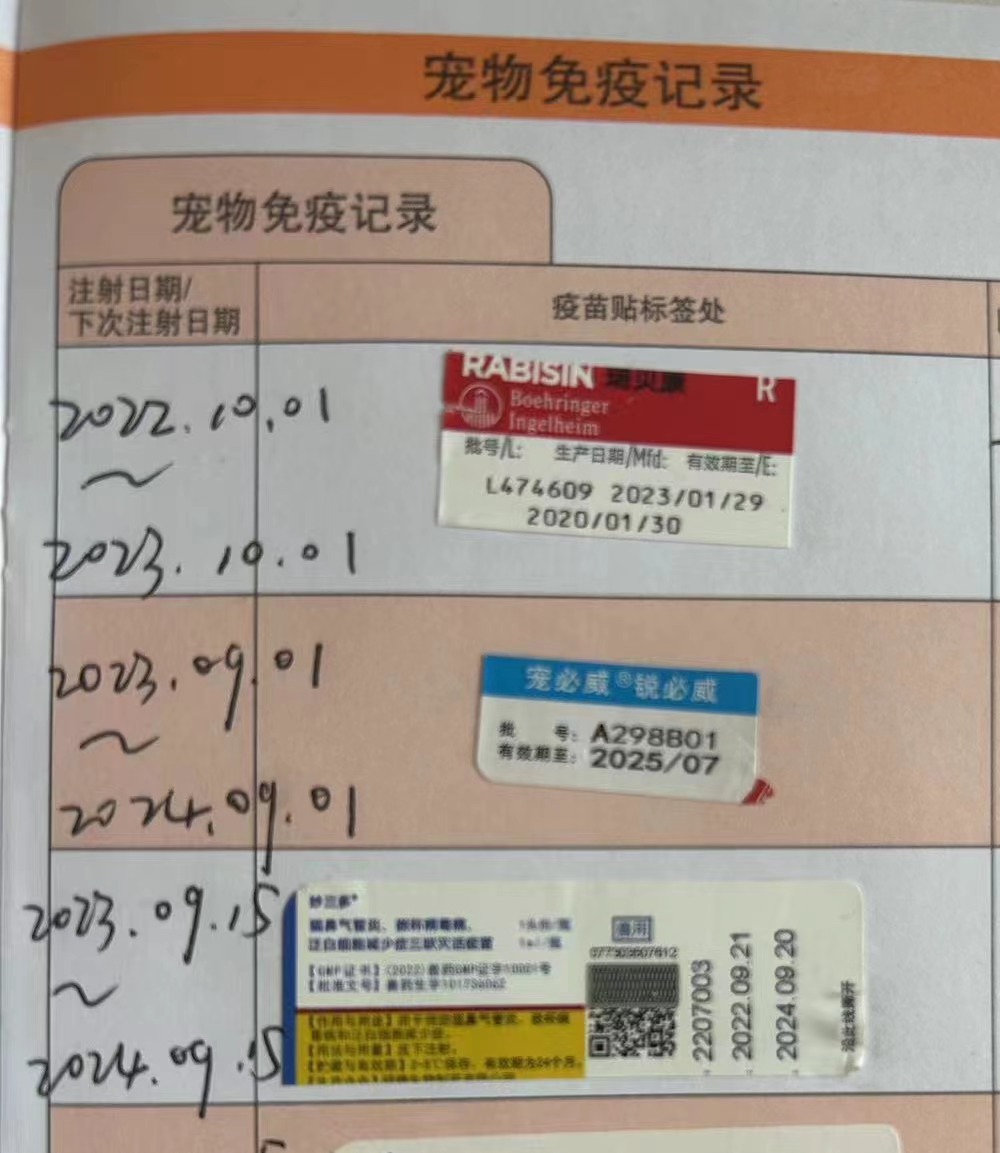 宠物免疫记录
宠物免疫记录
注射日期/
下次注射日期
疫苗贴标签处
2022.10.01
~
2023.10.01
RABISIN 瑞贝康 R
Boehringer
Ingelheim
批号/L: 生产日期/Mfd: 有效期至/E:
L474609 2023/01/29
2020/01/30
2023.09.01
~
2024.09.01
宠必威®锐必威
批 号: A298B01
有效期至: 2025/07
2023.09.15
~
2024.09.15
妙三多®
猫鼻气管炎、嵌杯病毒病、
泛白细胞减少症三联灭活疫苗
【GMP证书】(2022)兽药GMP证字10001号
【批准文号】兽药生字
【作用与用途】用于预防猫鼻气管炎、
【用法与用量】皮下注射。
【贮藏与有效期】2-8℃保存，有效期为24个月。
兽用
2207003
2022.09.21
2024.09.20
沿此线撕开